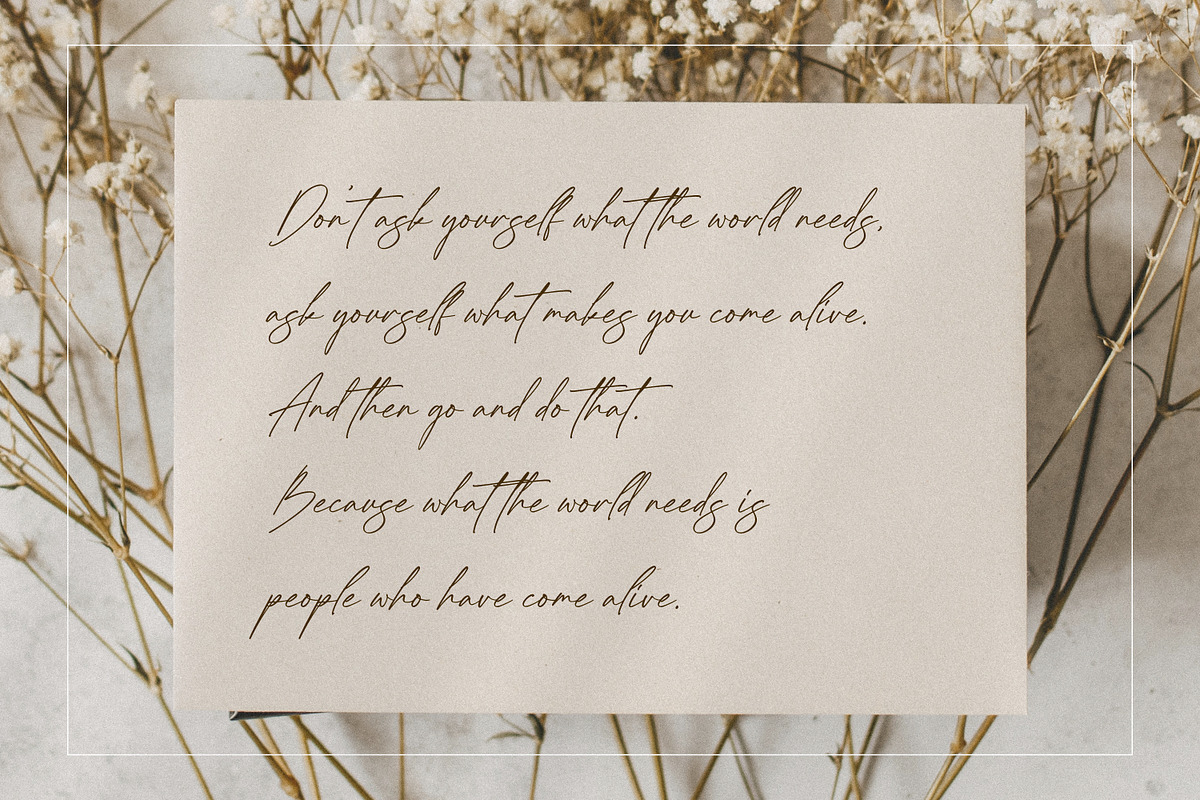 Don't ask yourself what the world needs,
ask yourself what makes you come alive.
And then go and do that.
Because what the world needs is
people who have come alive.